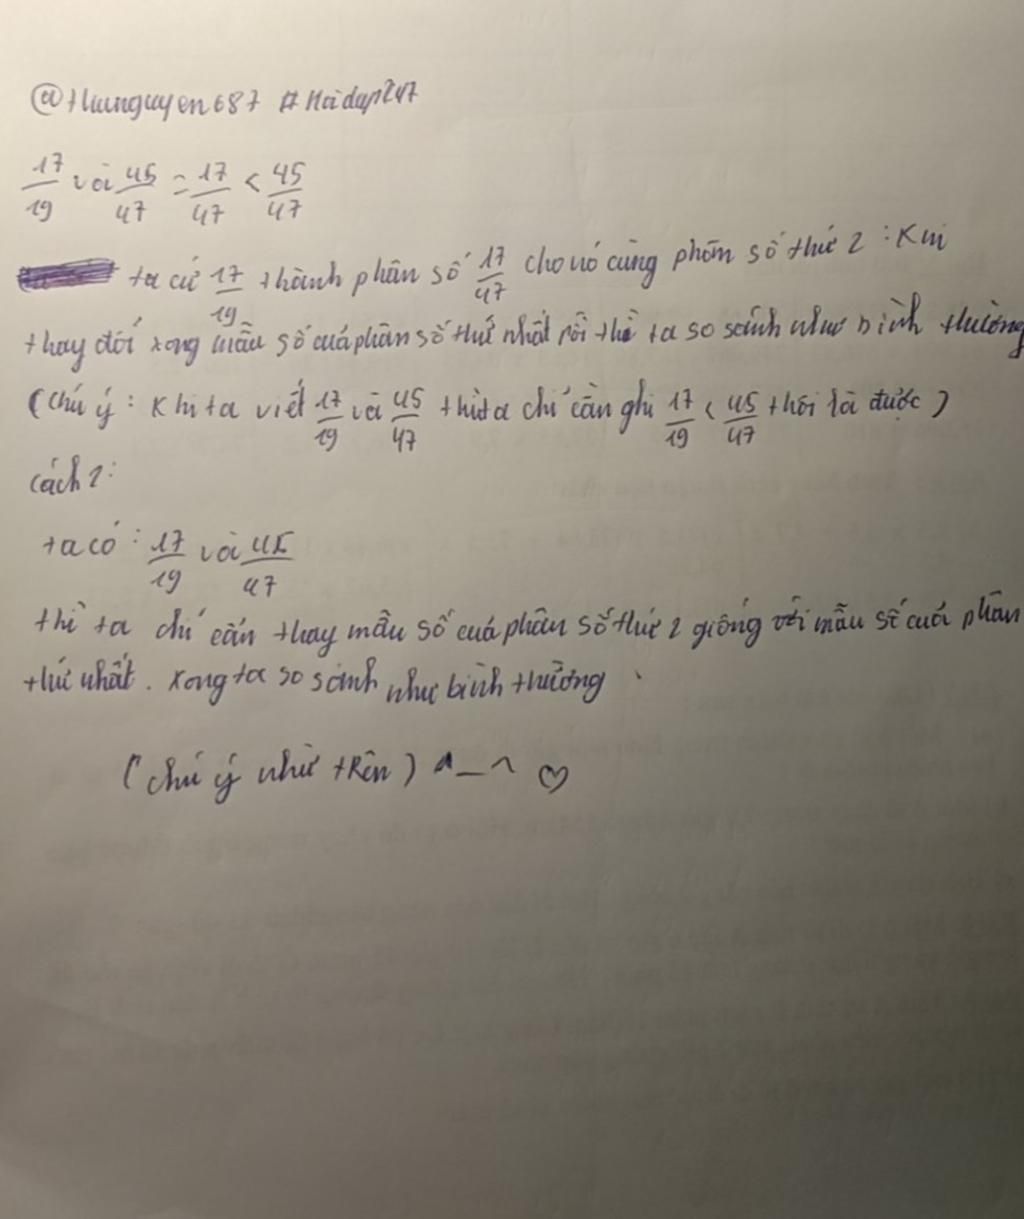 @thunguyen687 #Hoidap247
17/19 và 45/47 = 17/47 < 45/47
ta cứ 17/19 thành phân số 17/47 cho nó cùng phân số thứ 2 : Khi
thay đổi xong mẫu số của phân số thứ nhất rồi thì ta so sánh như bình thường
(Chú ý : Khi ta viết 17/19 và 45/47 thì ta chỉ cần ghi 17/19 < 45/47 thôi là được)
cách 2:
ta có : 17/19 và 45/47
thì ta chỉ cần thay mẫu số của phân số thứ 2 giống với mẫu số của phân
thứ nhất. xong ta so sánh như bình thường
(chú ý như trên) ^_^ ♡